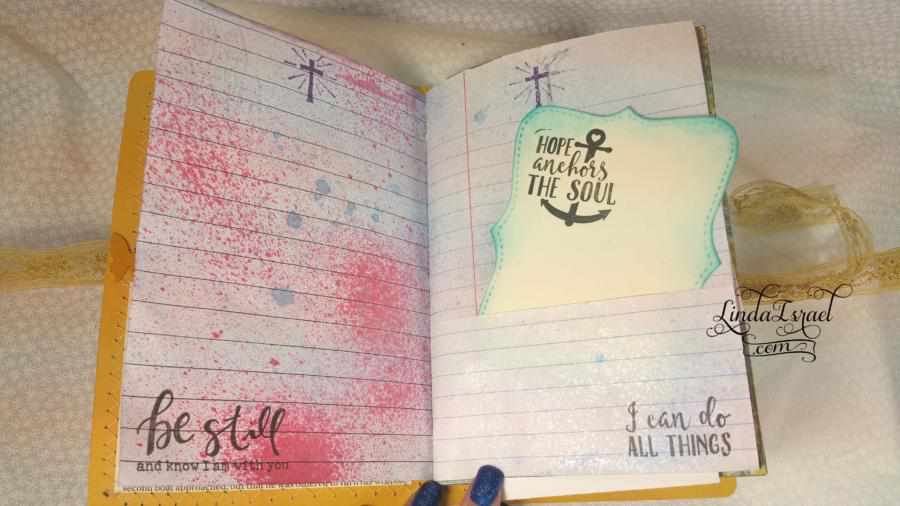 be still
and know I am with you
HOPE
anchors
THE SOUL
I can do
ALL THINGS
LindaIsrael
.com